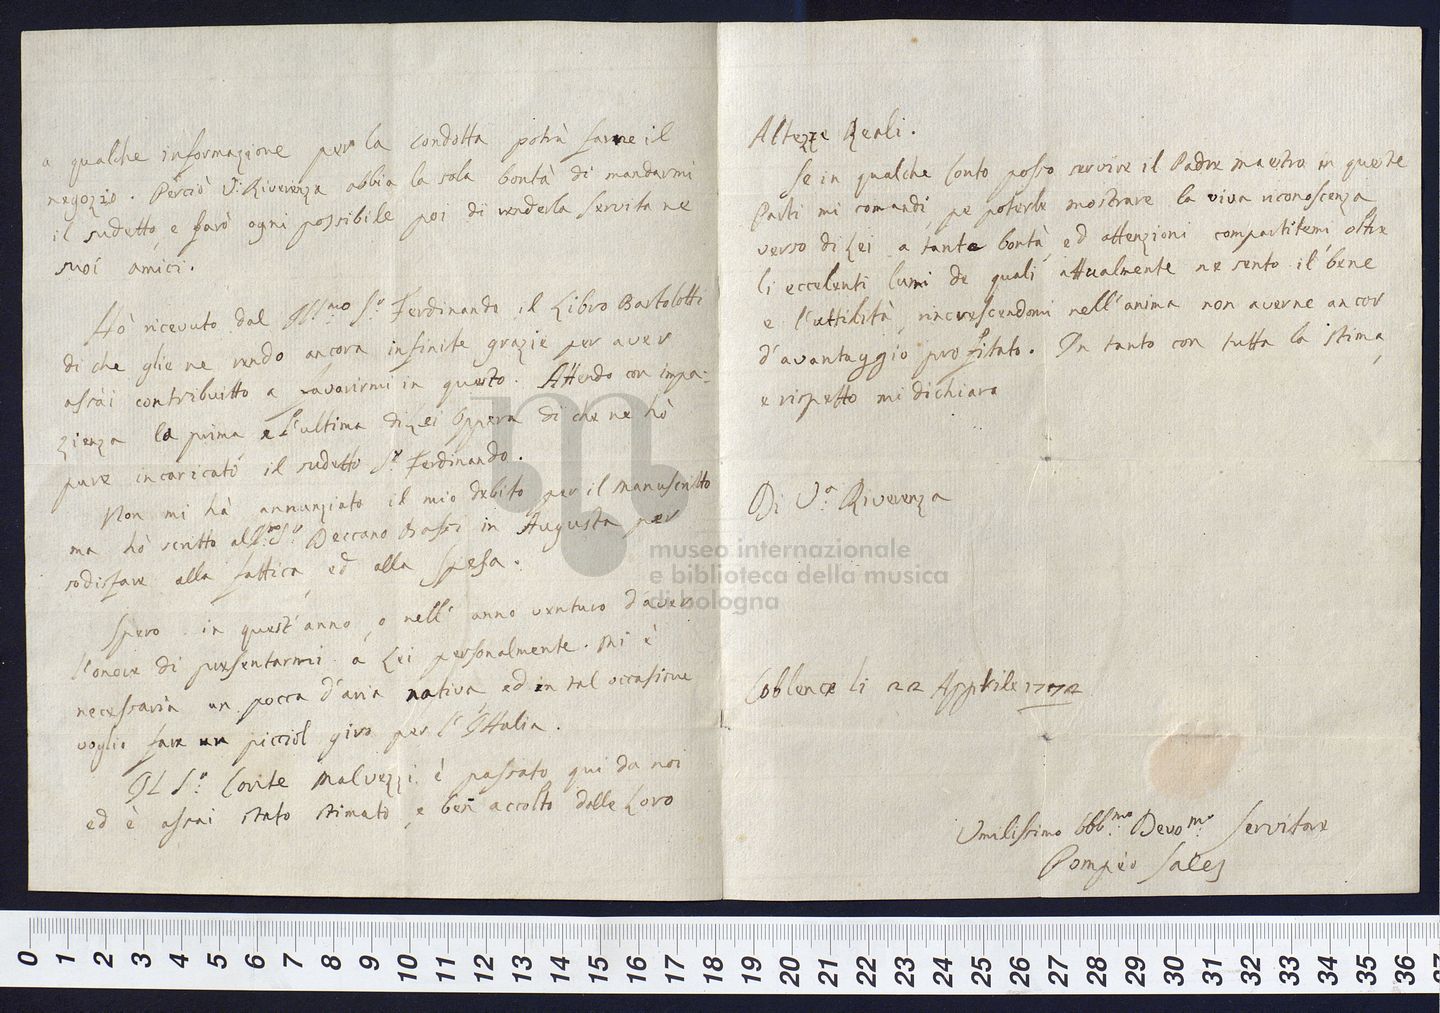 a qualche informazione per la condotta potrà farne il
negozio. Perciò V: Riverenza abbia la sola bontà di mandarmi
il sudetto, e farò ogni possibile poi di renderla servita ne
suoi amici.
Hò ricevuto dal Ill:mo S:r Ferdinando il Libro Bartolotti
di che glie ne rendo ancora infinite grazie per aver
assai contribuitto a favorirmi in questo. Attendo con impa-
zienza la prima e l'ultima di Lei Oppera di che ne hò
pure incaricato il sudetto S:r Ferdinando.
Non mi hà annunziato il mio debito per il manuscritto
ma hò scritto al S:r Deccano Bassi in Augusta per
sodisfare alla fattica, ed alla spesa.
Spero in quest'anno, o nell'anno venturo d'aver
l'onore di presentarmi a Lei personalmente. Mi è
necessaria un pocca d'aria nativa, ed in tal occasione
voglio fare un picciol giro per l'Ittalia.
Il S:r Conte Malvezzi è passato qui da noi
ed è assai stato stimato, e ben accolto dalle Loro
Altezze Reali.
Se in qualche Conto posso servire il Padre maestro in queste
Parti mi comandi, pe poterle mostrare la viva riconoscenza
verso di Lei a tanta bontà, ed attenzioni compartitemi oltre
li eccelenti lumi de quali attualmente ne sento il bene
e l'uttilità, rincrescendomi nell'anima non averne ancor
d'avantaggio profitato. In tanto con tutta la stima,
e rispetto mi dichiaro
Di V:a Riverenza
Coblence li 22 Apprile 1772
Umilissimo Obb:mo Devo:mo Servitore
Pompeo Sales
museo internazionale
e biblioteca della musica
di bologna
0 1 2 3 4 5 6 7 8 9 10 11 12 13 14 15 16 17 18 19 20 21 22 23 24 25 26 27 28 29 30 31 32 33 34 35 36 37